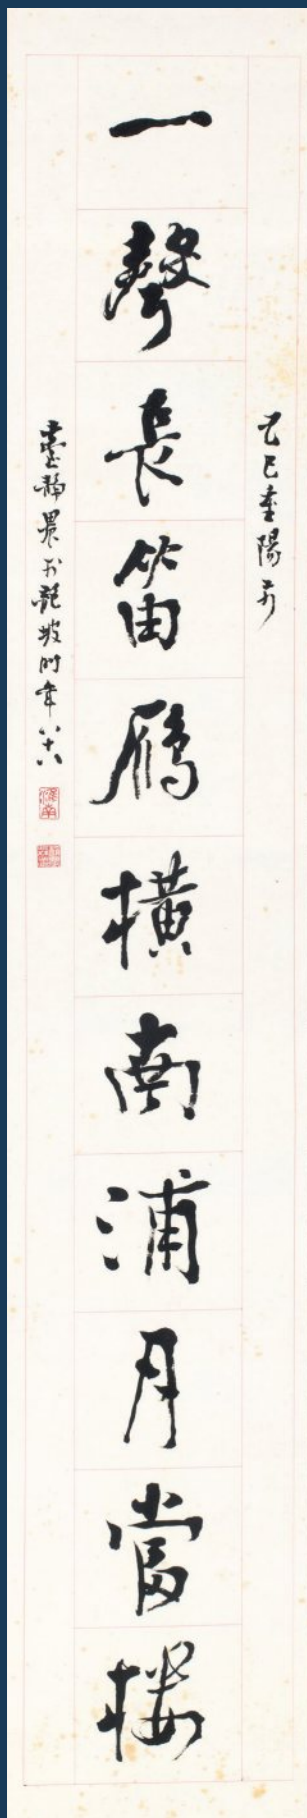 己巳重陽前
一聲長笛雁橫南浦月當樓
臺靜農於龍坡時年八十八